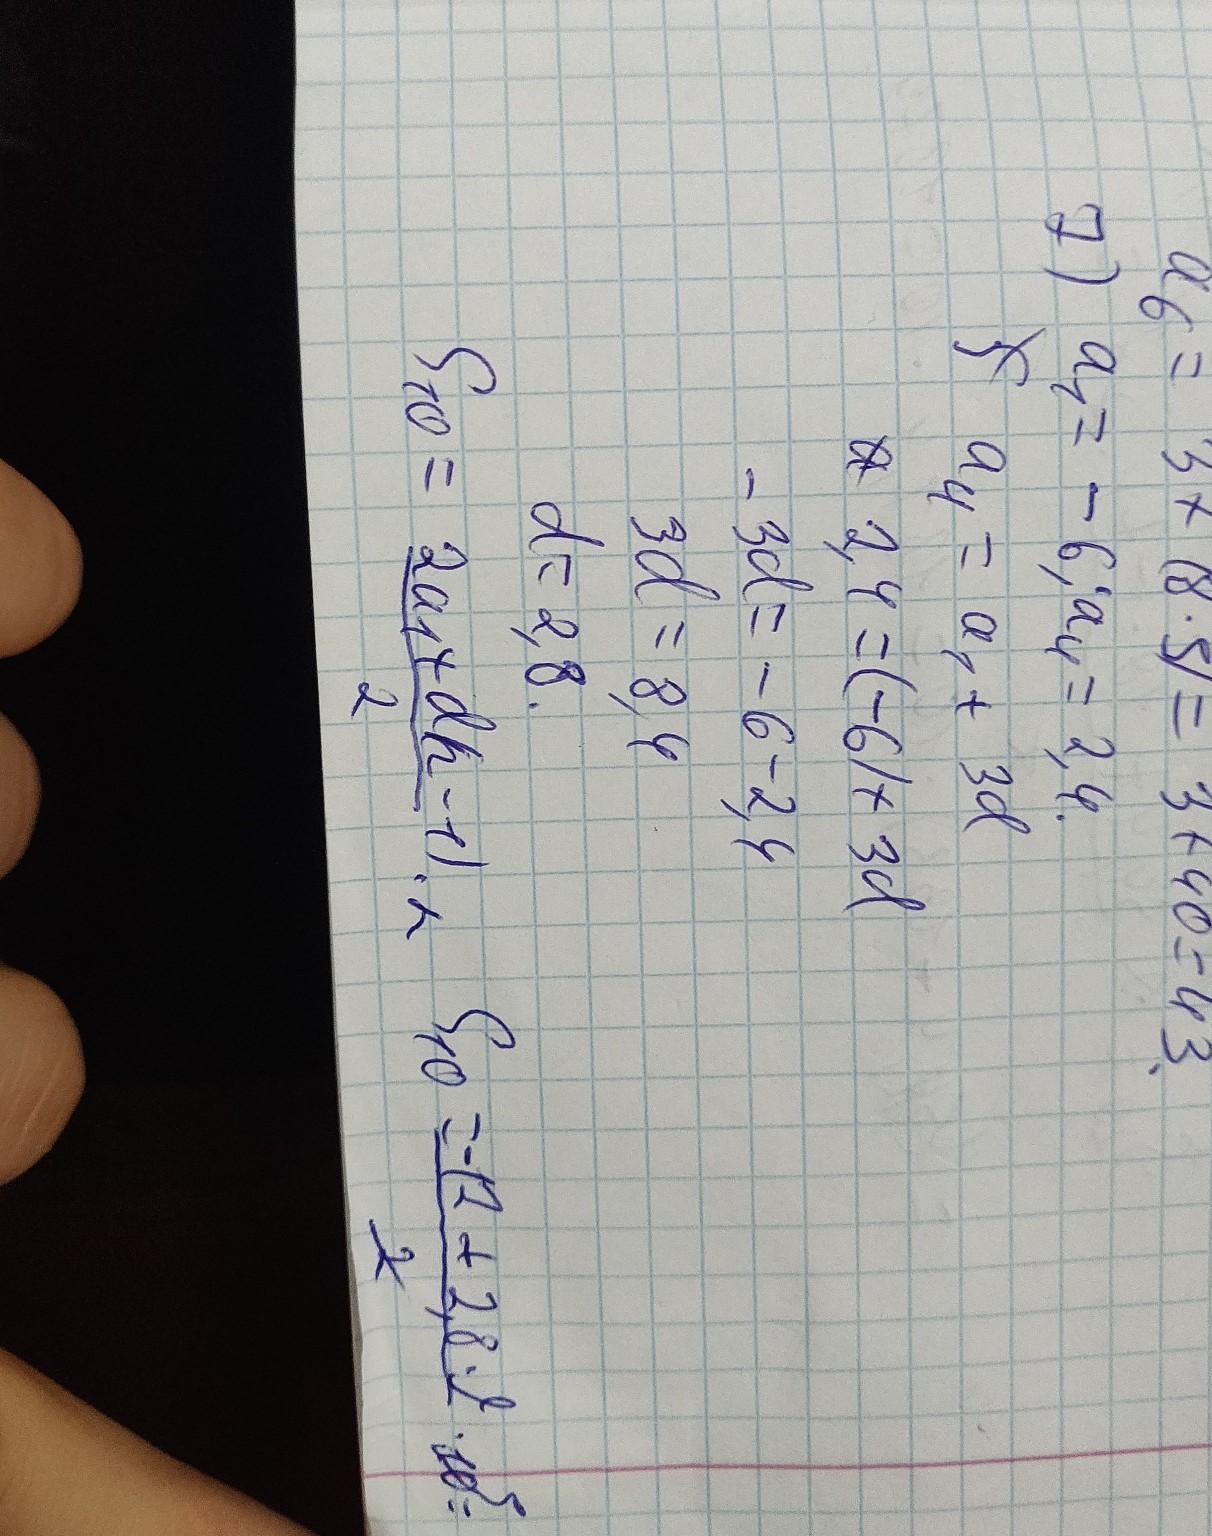 a₆ = 3 + (8·5) = 3+40=43.
7) a₁ = -6; a₄ = 2,4.
a₄ = a₁ + 3d
2,4 = (-6) + 3d
-3d = -6-2,4
3d = 8,4
d = 2,8.
S₁₀ = 2a₁ + d(n-1) / 2 · n S₁₀ = -12 + 2,8·9 / 2 · 10 5 =